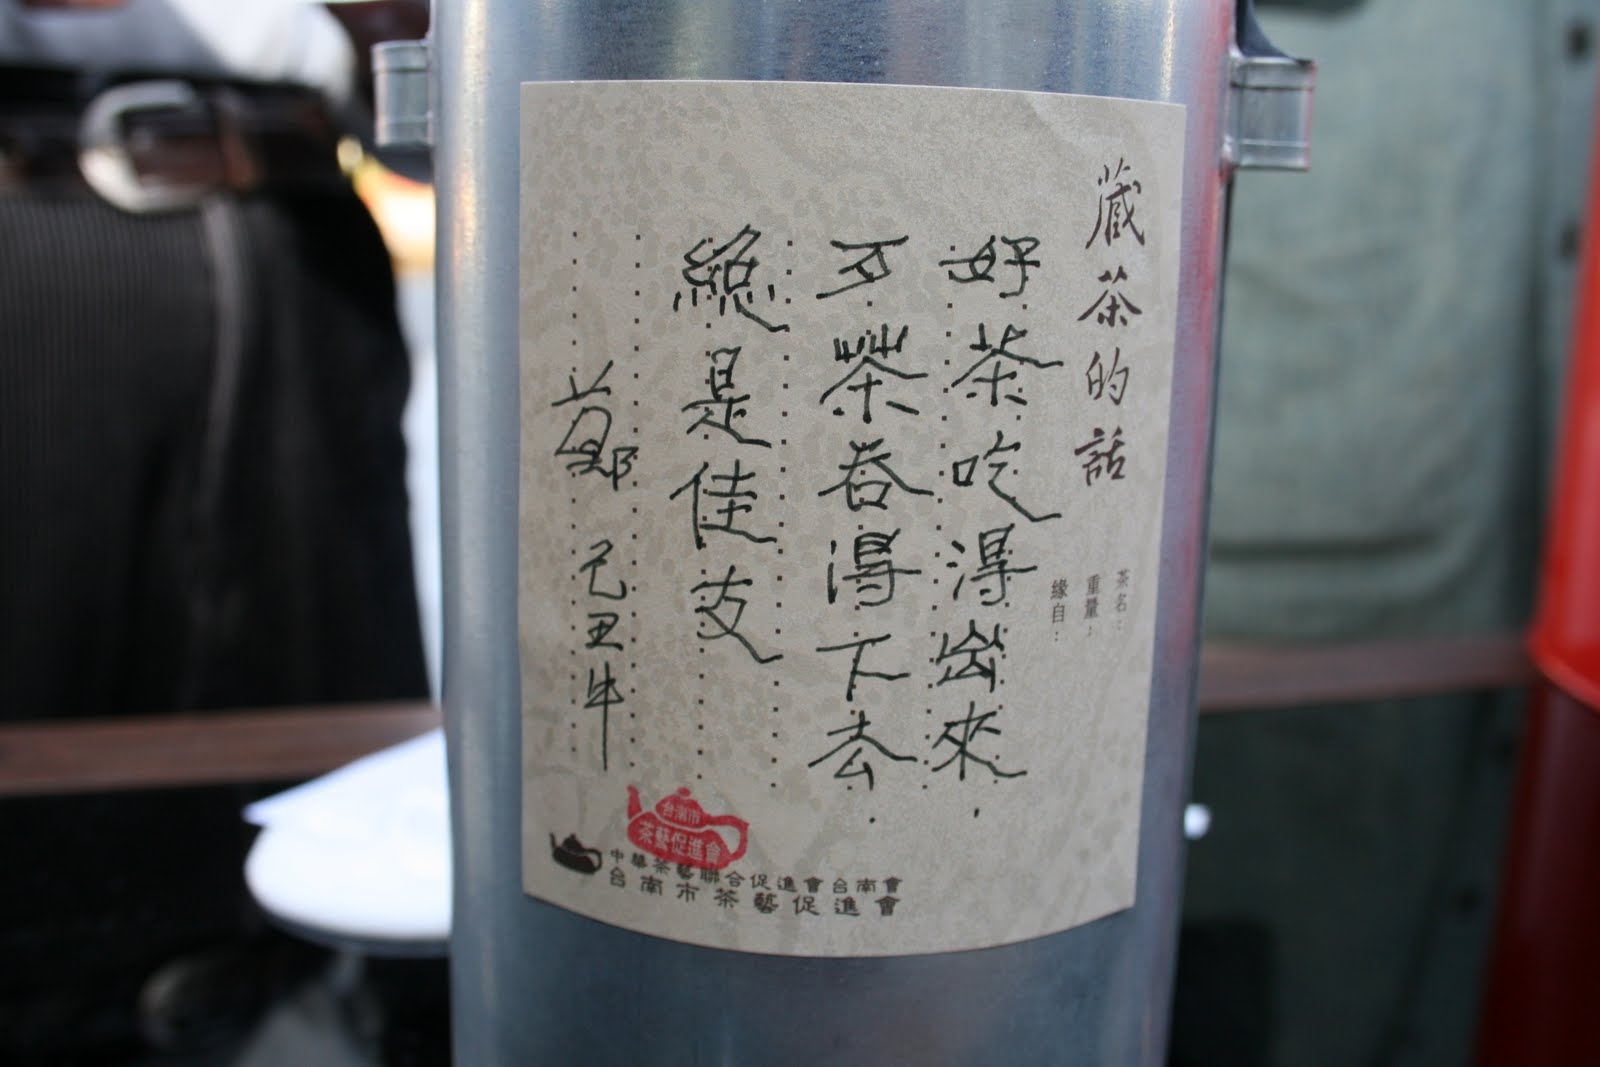 藏茶的話
茶名：
重量：
緣自：
好茶吃得出來.
歹茶吞得下去.
總是佳
鄭 己丑牛
台南市
茶藝促進會
中華茶藝聯合促進會台南會
台南市茶藝促進會